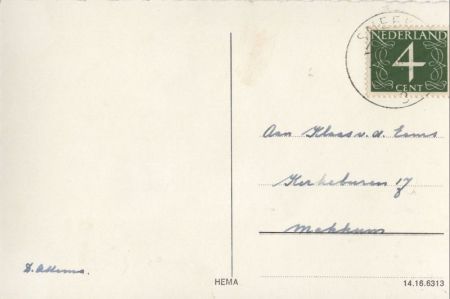 SNEEK
NEDERLAND
4
CENT
Aan Klaas v. d. Eems
Kerkeburen
Makkum
HEMA
14.16.6313